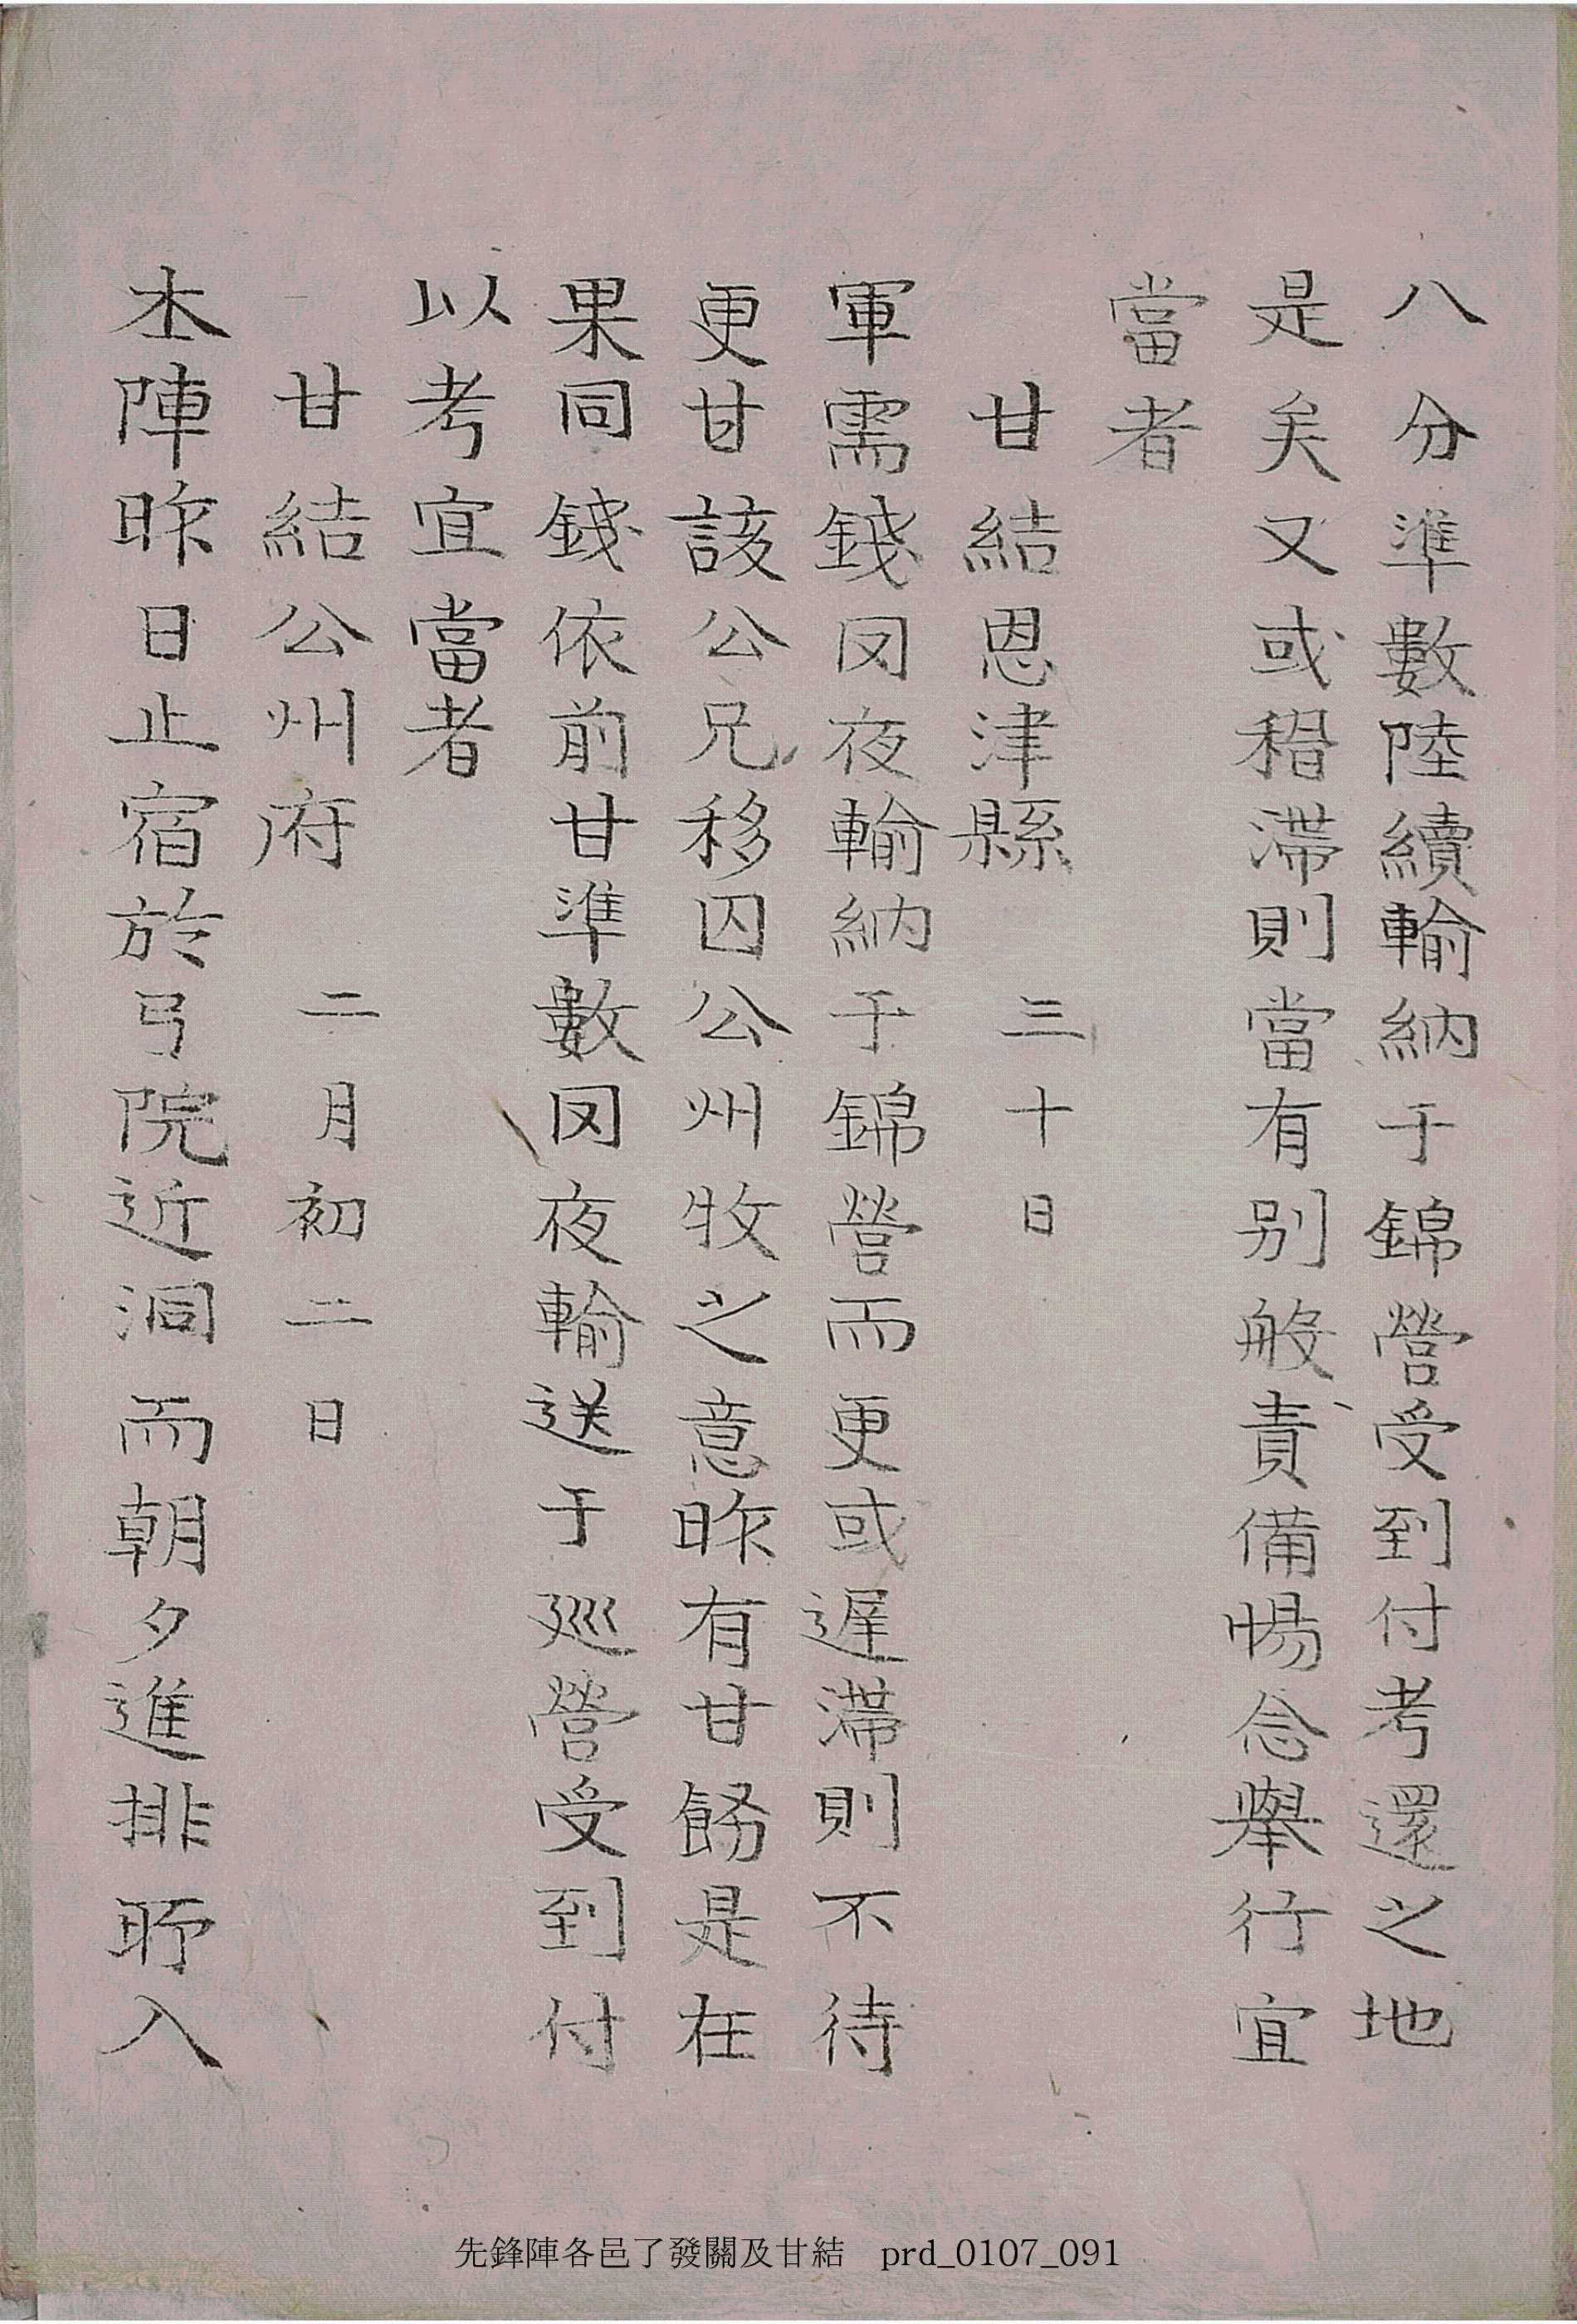 八分準數陸續輸納于錦營受到付考還之地
是矣又或稽滯則當有別般責備惕念擧行宜
當者
甘結恩津縣 三十日
軍需錢罔夜輸納于錦營而更或遲滯則不待
更甘該公兄移囚公州牧之意昨有甘飭是在
果同錢依前甘準數罔夜輸送于巡營受到付
以考宜當者
甘結公州府 二月初二日
本陣昨日止宿於弓院近洞而朝夕進排所入
先鋒陣各邑了發關及甘結 prd_0107_091